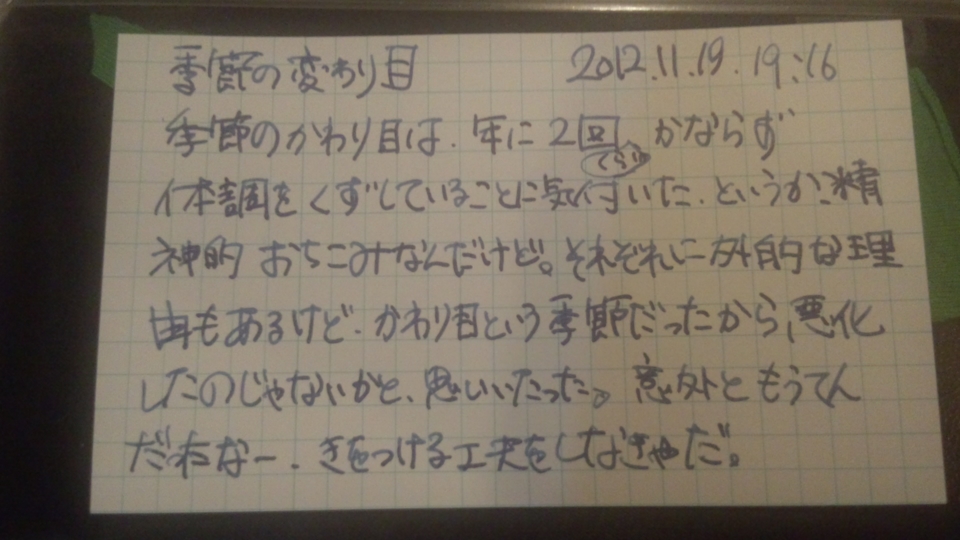 季節の変わり目 2012.11.19. 19:16
季節のかわり目は、年に2回くらいかならず
体調をくずしていることに気付いた、というか、精
神的おちこみなんだけど。それぞれに外的な理
由もあるけど、かわり目という季節だったから、悪化
したのじゃないかと、思いいたった。意外ともうてん
だわなー、きをつける工夫をしなきゃだ。